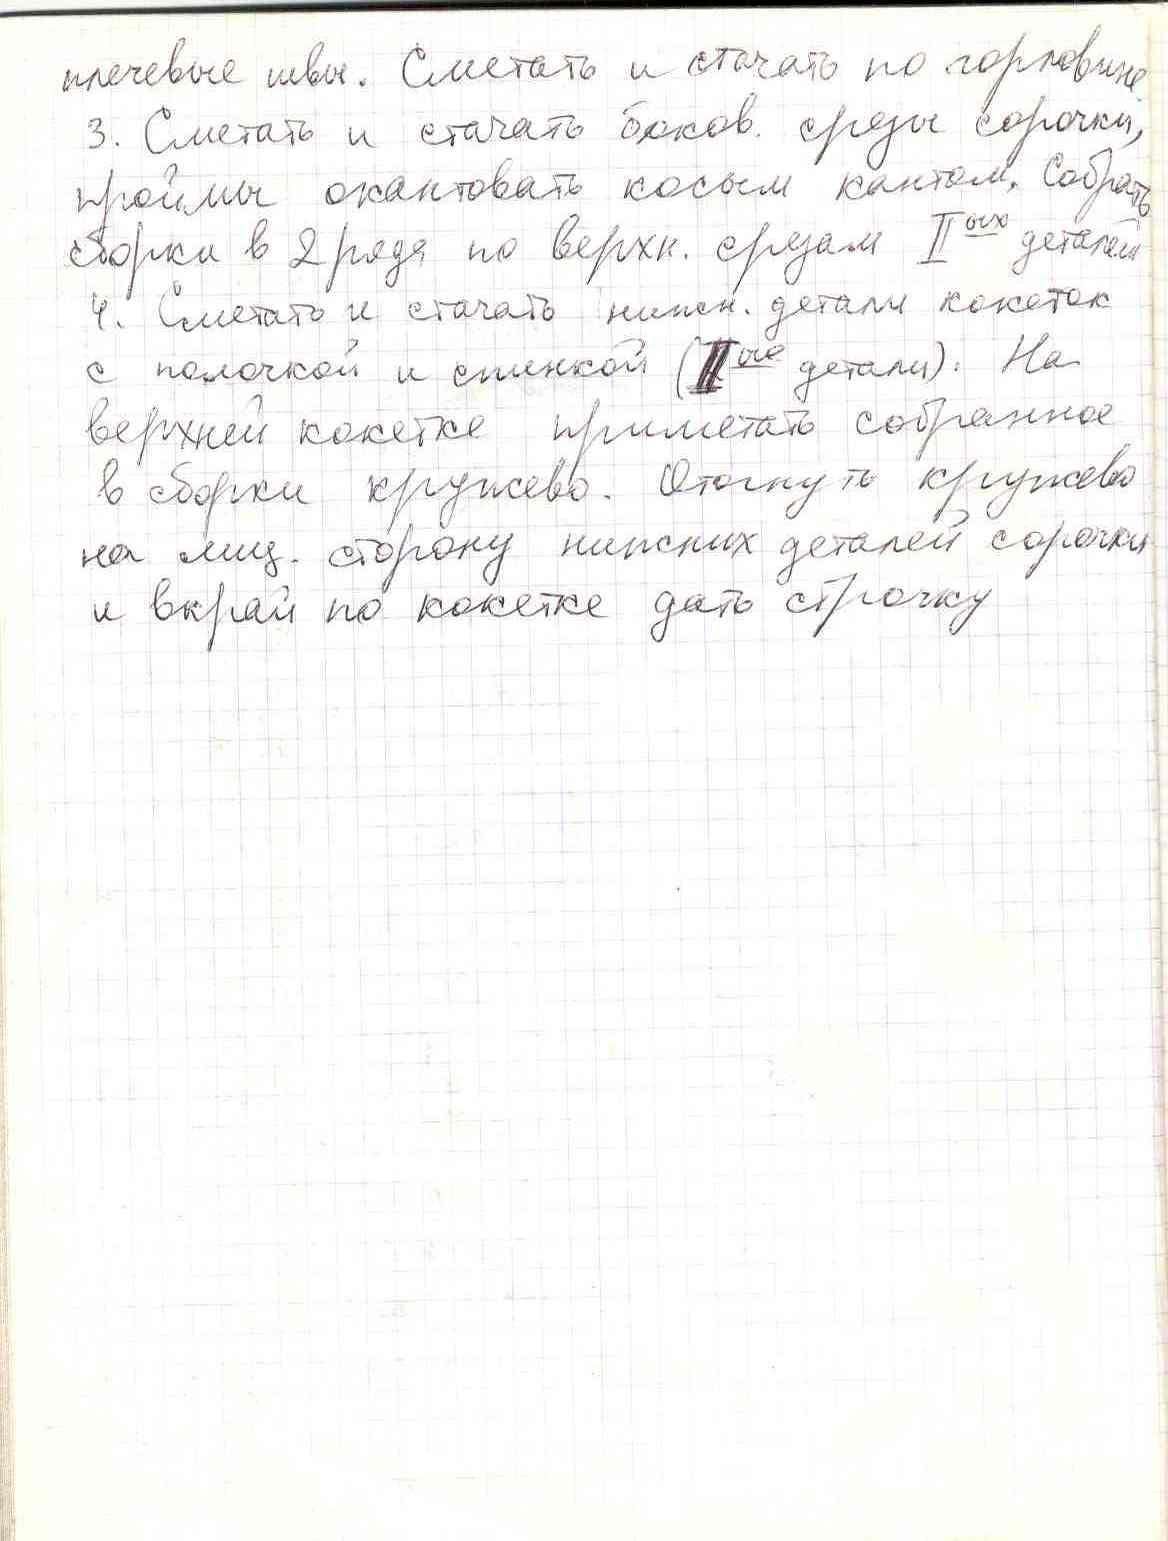 плечевые швы. Сметать и стачать по горловине.
3. Сметать и стачать боков. срезы сорочки,
проймы окантовать косым кантом. Собрать
сборки в 2 ряда по верхн. срезам II ых деталей
4. Сметать и стачать нижн. детали кокеток
с полочкой и спинкой (II ые детали). На
верхней кокетке приметать собранное
в сборки кружево. Отогнуть кружево
на лиц. сторону нижних деталей сорочки
и вкрай по кокетке дать строчку